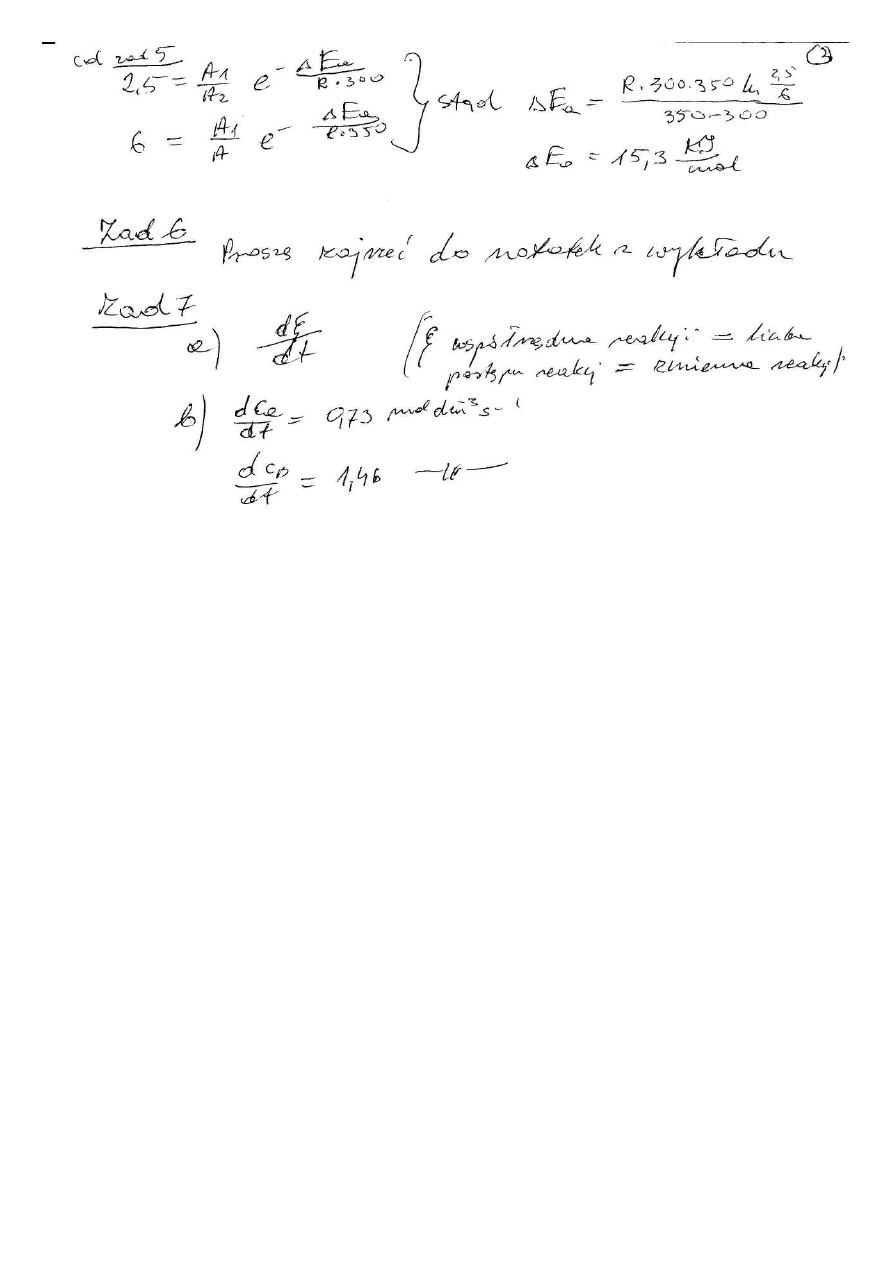 cd zad 5
(3)
2,5 = A1/A2 e^- ΔEa/R·300 } stąd ΔEa = R·300·350 ln 2,5/6 / 350-300
6 = A1/A e^- ΔEa/R·350
ΔEa = 15,3 kJ/mol
Zad 6 Proszę zajrzeć do notatek z wykładu
Zad 7
a) dξ/dt (ξ współrzędna reakcji = liczba
postępu reakcji = zmienna reakcji)
b) dca/dt = 0,73 mol dm⁻³ s⁻¹
dcB/dt = 1,46 —〃—